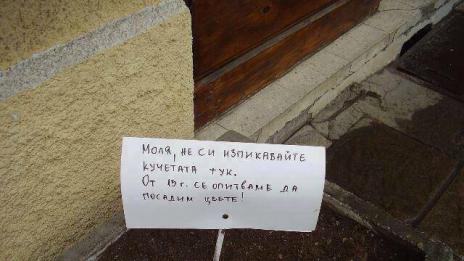 Моля, не си изпикавайте
кучетата тук.
От 19 г. се опитваме да
посадим цвете!